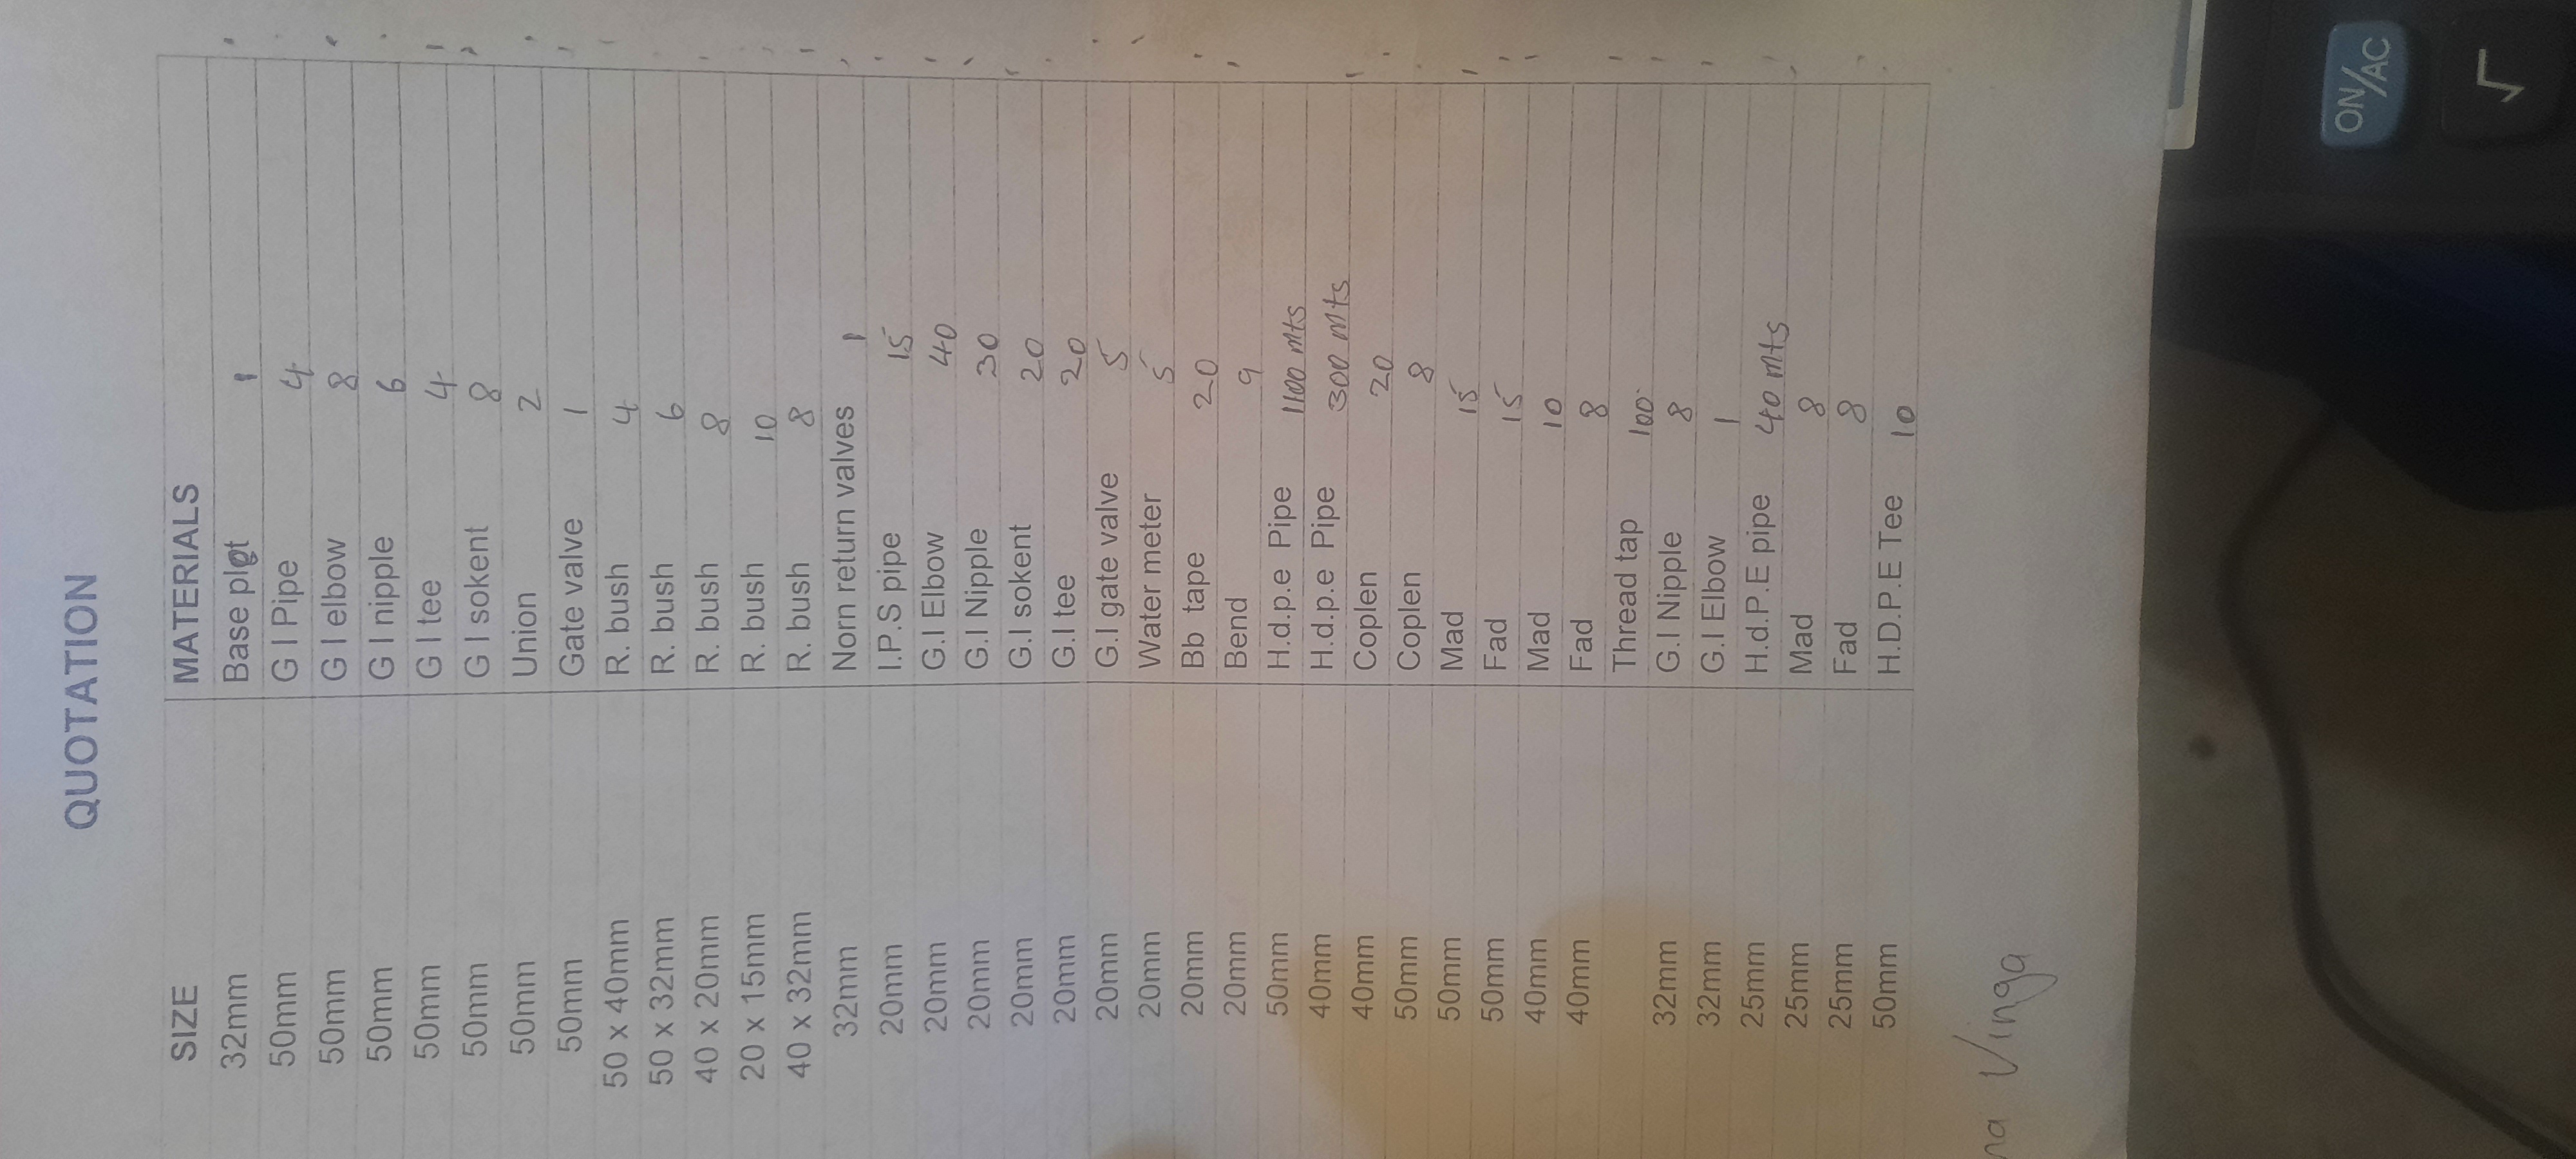 QUOTATION
SIZE MATERIALS
32mm Base plet 1
50mm G I Pipe 4
50mm G I elbow 8
50mm G I nipple 6
50mm G I tee 4
50mm G I sokent 8
50mm Union 2
50mm Gate valve 1
50 x 40mm R. bush 4
50 x 32mm R. bush 6
40 x 20mm R. bush 8
20 x 15mm R. bush 10
40 x 32mm R. bush 8
32mm Norn return valves 1
20mm I.P.S pipe 15
20mm G.I Elbow 40
20mm G.I Nipple 30
20mm G.I sokent 20
20mm G.I tee 20
20mm G.I gate valve 5
20mm Water meter 5
20mm Bb tape 20
20mm Bend 9
50mm H.d.p.e Pipe 1100 mts
40mm H.d.p.e Pipe 300 mts
40mm Coplen 20
50mm Coplen 8
50mm Mad 15
50mm Fad 15
40mm Mad 10
40mm Fad 8
Thread tap 100
32mm G.I Nipple 8
32mm G.I Elbow 1
25mm H.d.P.E pipe 40 mts
25mm Mad 8
25mm Fad 8
50mm H.D.P.E Tee 10
na Vinga
ON/AC
√